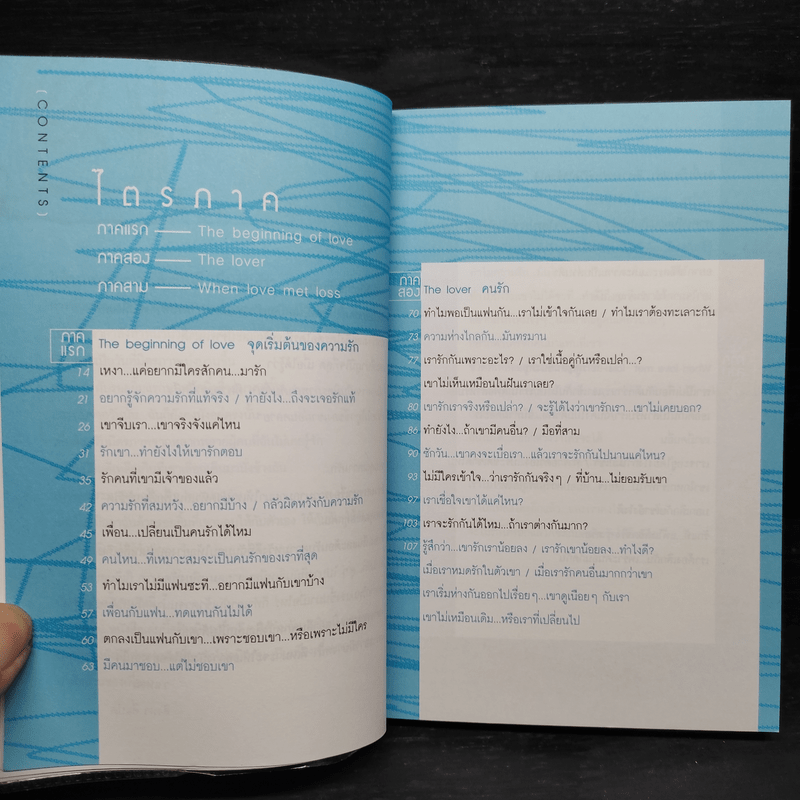 (CONTENTS)
ไตรภาค
ภาคแรก — The beginning of love
ภาคสอง — The lover
ภาคสาม — When love met loss
ภาคแรก The beginning of love จุดเริ่มต้นของความรัก
14 เหงา...แค่อยากมีใครสักคน...มารัก
21 อยากรู้จักความรักที่แท้จริง / ทำยังไง...ถึงจะเจอรักแท้
26 เขาจีบเรา...เขาจริงจังแค่ไหน
31 รักเขา...ทำยังไงให้เขารักตอบ
35 รักคนที่เขามีเจ้าของแล้ว
42 ความรักที่สมหวัง...อยากมีบ้าง / กลัวผิดหวังกับความรัก
45 เพื่อน...เปลี่ยนเป็นคนรักได้ไหม
49 คนไหน...ที่เหมาะสมจะเป็นคนรักของเราที่สุด
53 ทำไมเราไม่มีแฟนซะที...อยากมีแฟนกับเขาบ้าง
57 เพื่อนกับแฟน...ทดแทนกันไม่ได้
60 ตกลงเป็นแฟนกับเขา...เพราะชอบเขา...หรือเพราะไม่มีใคร
63 มีคนมาชอบ...แต่ไม่ชอบเขา
ภาคสอง The lover คนรัก
70 ทำไมพอเป็นแฟนกัน...เราไม่เข้าใจกันเลย / ทำไมเราต้องทะเลาะกัน
73 ความห่างไกลกัน...มันทรมาน
77 เรารักกันเพราะอะไร? / เราใช่เนื้อคู่กันหรือเปล่า...?
เขาไม่เห็นเหมือนในฝันเราเลย?
80 เขารักเราจริงหรือเปล่า? / จะรู้ได้ไงว่าเขารักเรา...เขาไม่เคยบอก?
86 ทำยังไง...ถ้าเขามีคนอื่น? / มือที่สาม
90 ซักวัน...เขาคงจะเบื่อเรา...แล้วเราจะรักกันไปนานแค่ไหน?
93 ไม่มีใครเข้าใจ...ว่าเรารักกันจริงๆ / ที่บ้าน...ไม่ยอมรับเขา
97 เราเชื่อใจเขาได้แค่ไหน?
103 เราจะรักกันได้ไหม...ถ้าเราต่างกันมาก?
107 รู้สึกว่า...เขารักเราน้อยลง / เรารักเขาน้อยลง...ทำไงดี?
เมื่อเราหมดรักในตัวเขา / เมื่อเรารักคนอื่นมากกว่าเขา
เราเริ่มห่างกันออกไปเรื่อยๆ...เขาดูเนือยๆ กับเรา
เขาไม่เหมือนเดิม...หรือเราที่เปลี่ยนไป